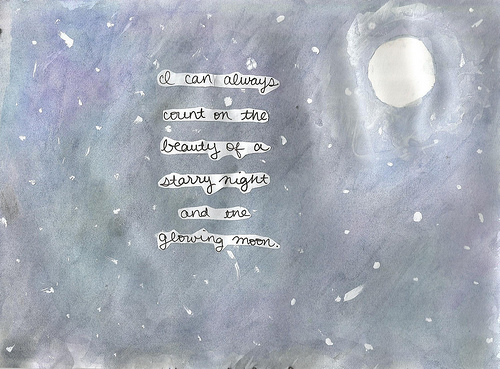 I can always
count on the
beauty of a
starry night
and the
glowing moon.